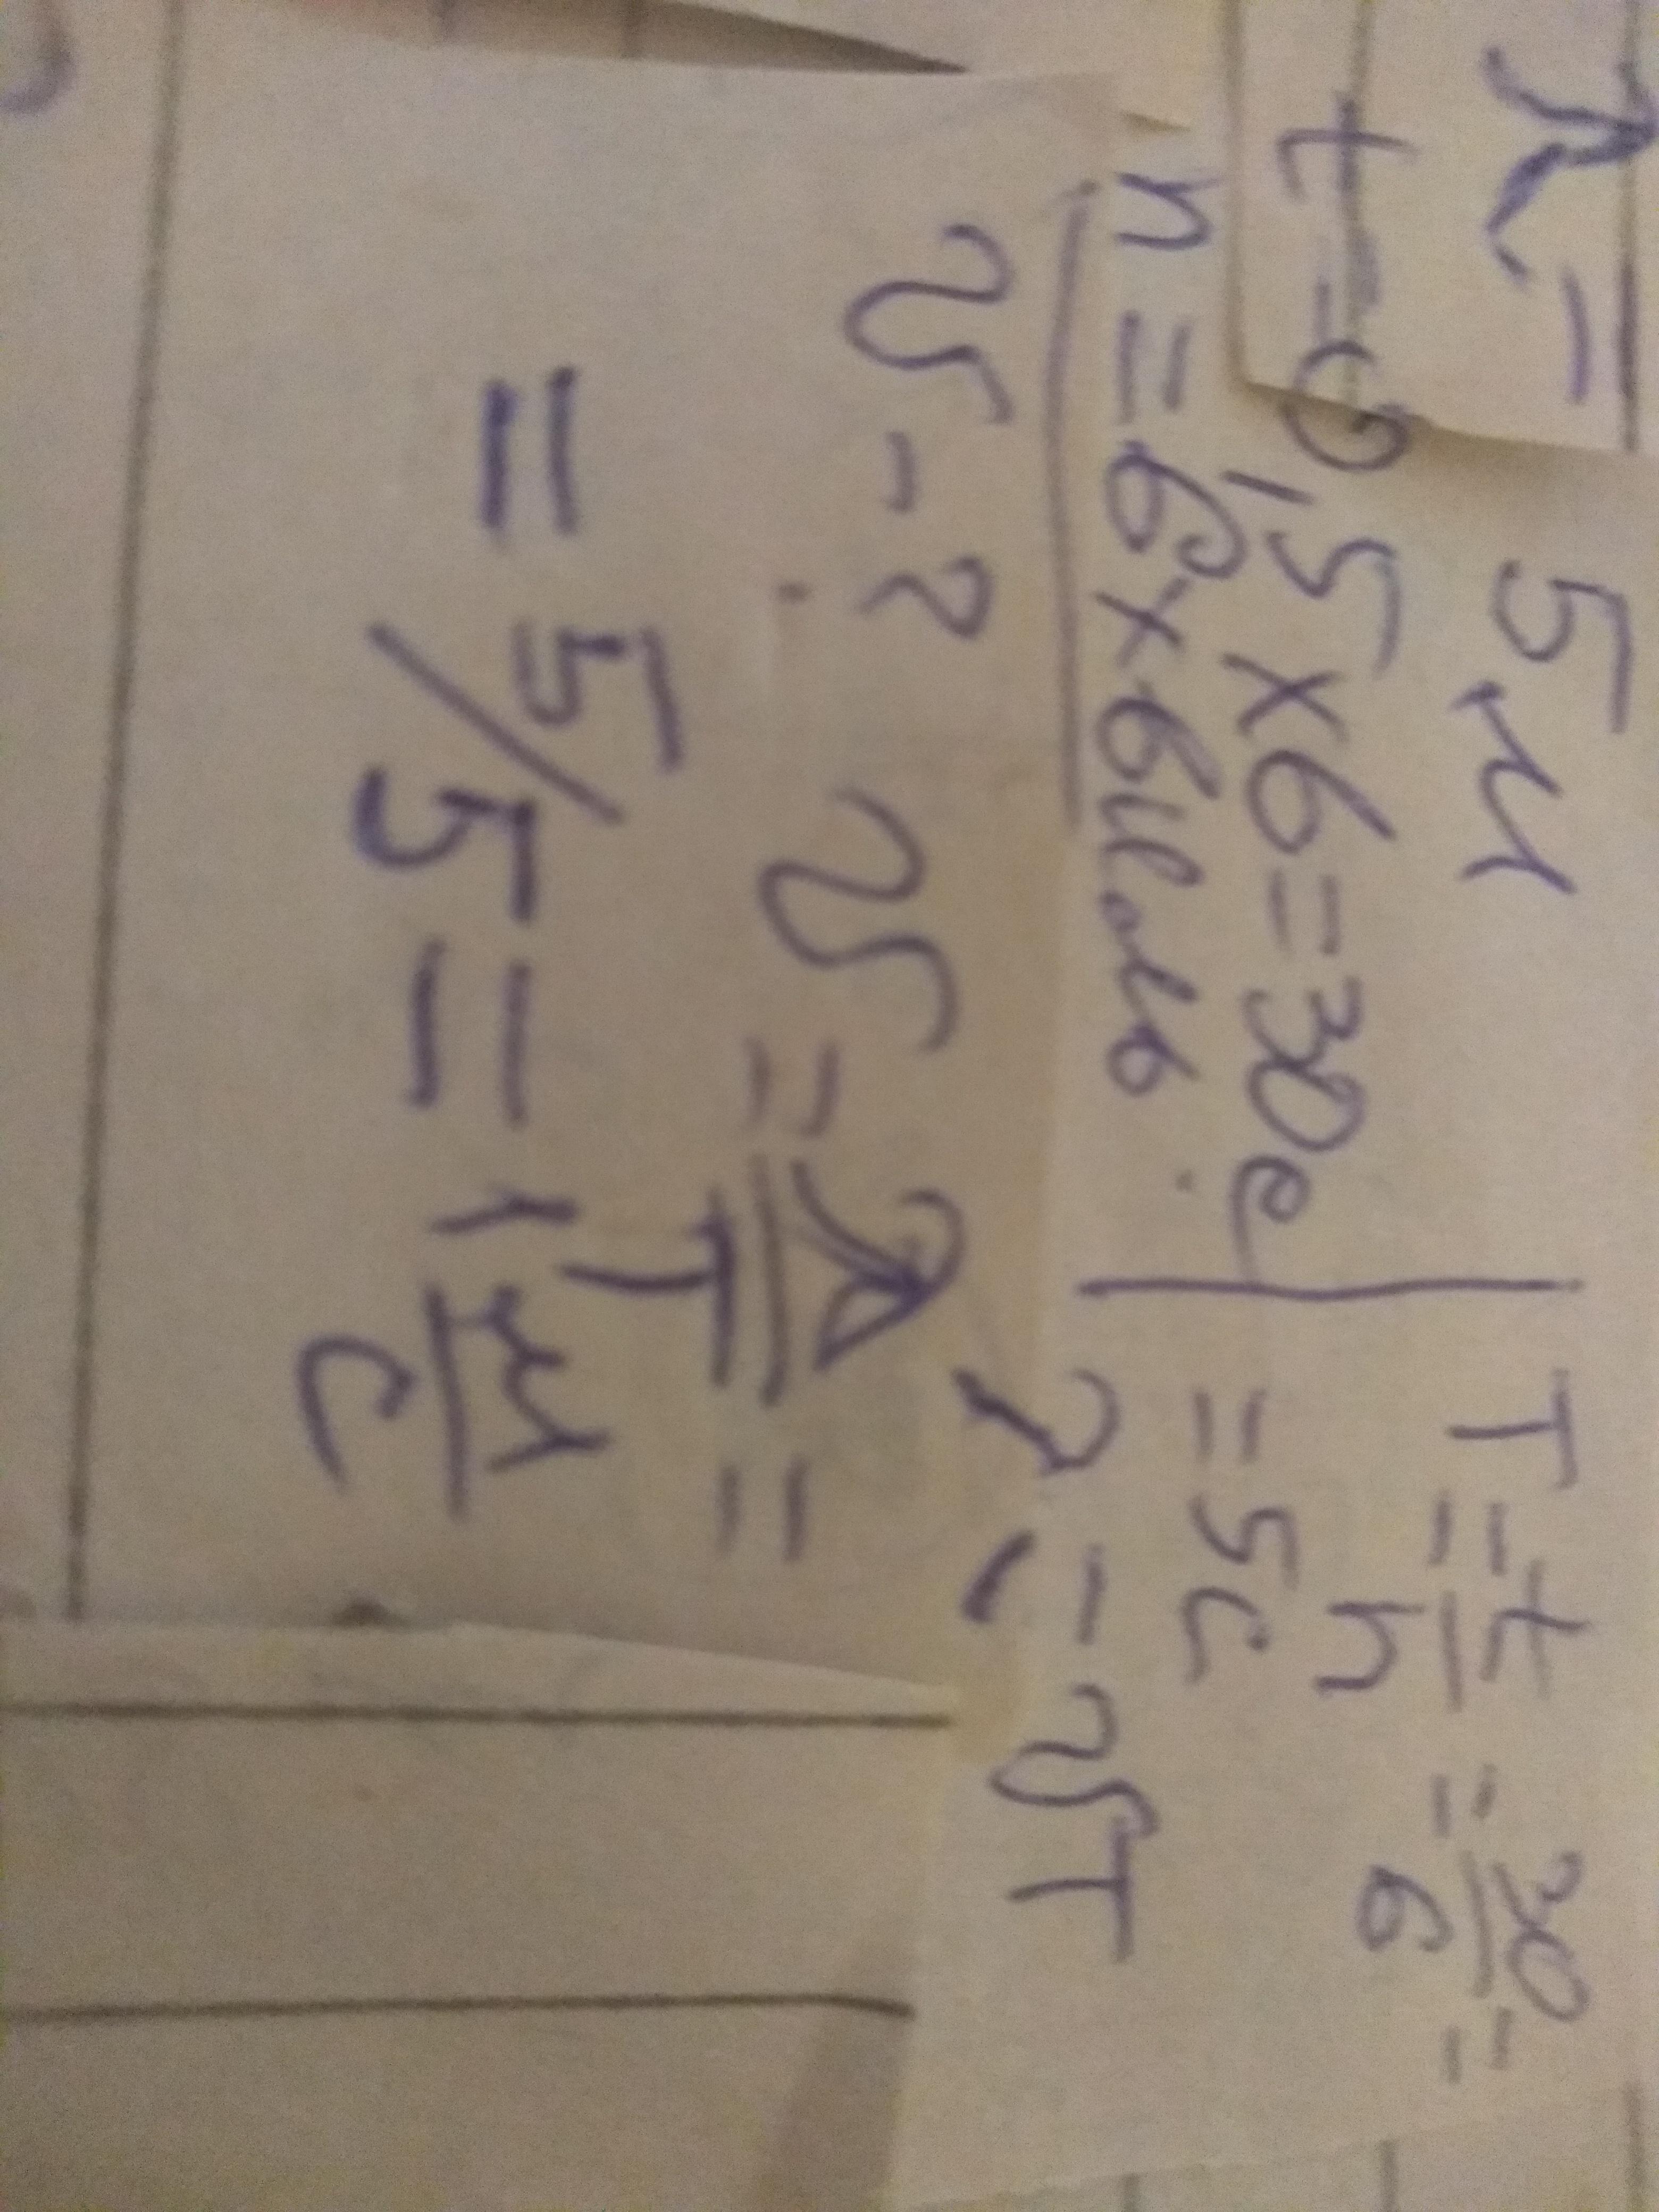 λ = 5 м
t = 0,5 x 6 = 30 c
n = 6
v - ?
T = t/n = 30/6 =
= 5 c
λ = vT
v = λ/T =
= 5/5 = 1 м/c